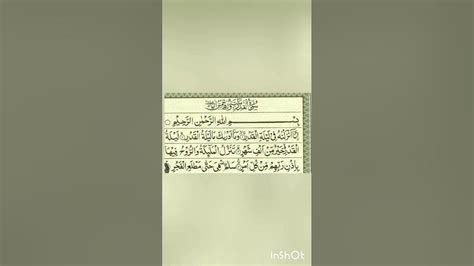 سُوْرَةُ الْقَدْرِ
بِسْمِ اللهِ الرَّحْمٰنِ الرَّحِيْمِ
اِنَّا اَنْزَلْنٰهُ فِيْ لَيْلَةِ الْقَدْرِ وَمَا اَدْرٰىكَ مَا لَيْلَةُ الْقَدْرِ لَيْلَةُ
الْقَدْرِ خَيْرٌ مِّنْ اَلْفِ شَهْرٍ تَنَزَّلُ الْمَلٰٓئِكَةُ وَالرُّوْحُ فِيْهَا
بِاِذْنِ رَبِّهِمْ مِّنْ كُلِّ اَمْرٍ سَلٰمٌ هِيَ حَتّٰى مَطْلَعِ الْفَجْرِ
InShOt